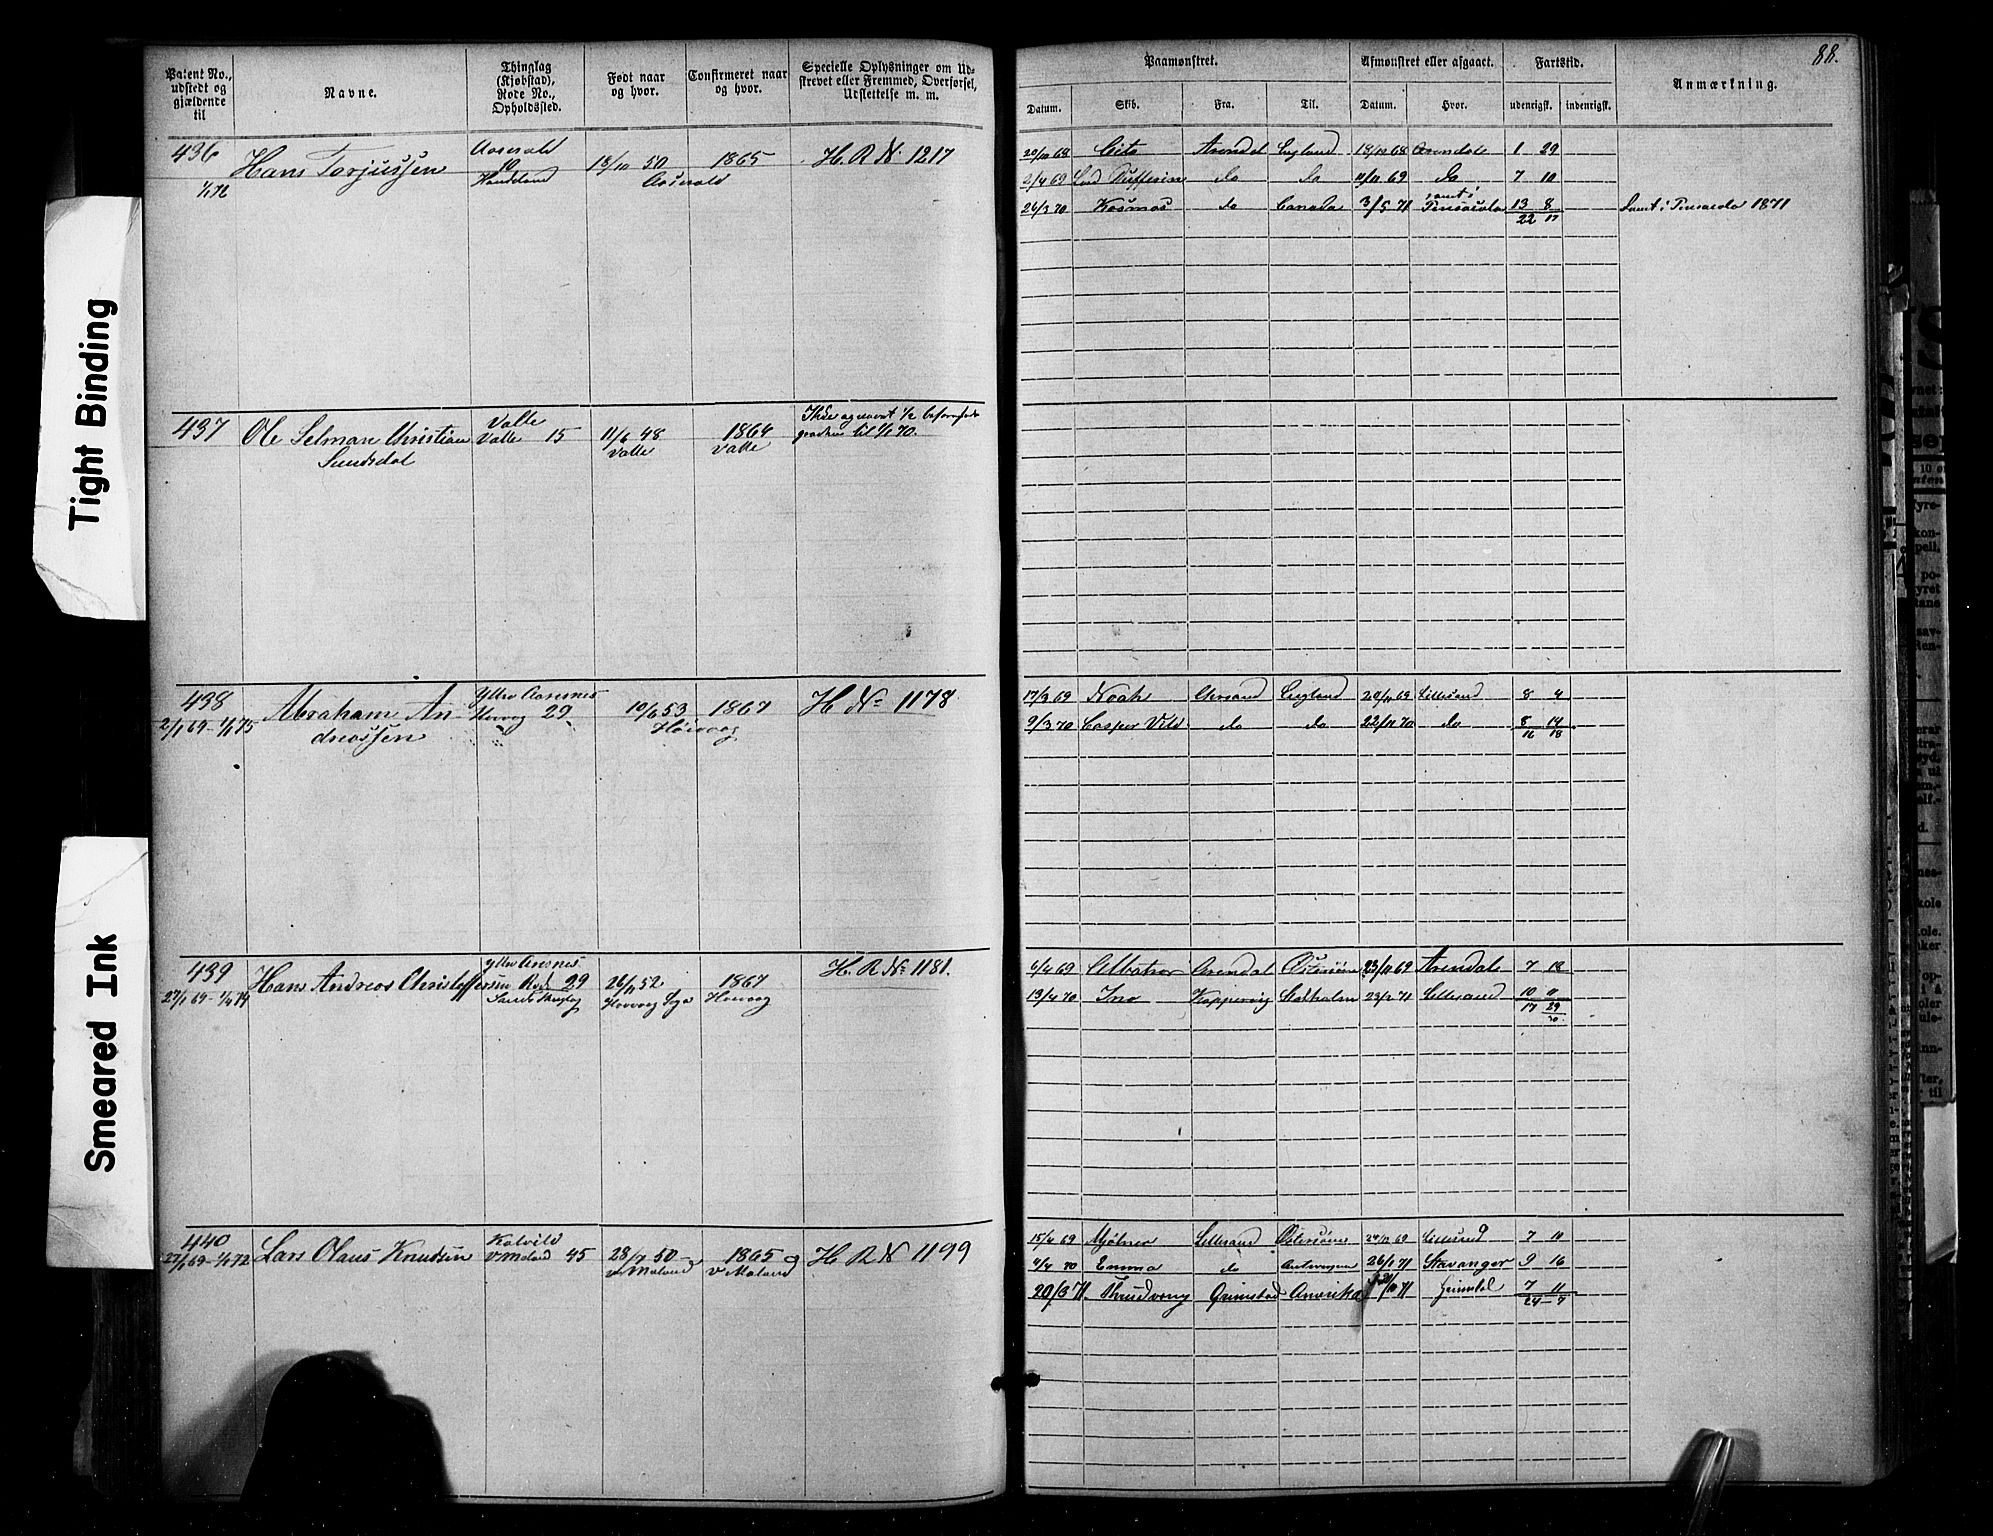 88.
Patent No., udstedt og gjældende til
Navne.
Thinglag (Kjøbstad), Rode No., Opholdssted.
Født naar og hvor.
Confirmeret naar og hvor.
Specielle Oplysninger om Udskrevet eller Fremmed, Overførsel, Udslettelse m. m.
Paamønstret.
Afmønstret eller afgaaet.
Fartstid.
Anmærkning.
Datum. Skib. Fra. Til. Datum. Hvor. udenrigsk. indenrigsk.
436 Hans Torjussen 10 18/10 50 1865 H. R. N. 1217
1/1 72 Aaserald
20/10 68 Cito Arendal England 18/12 68 Arendal 1 29
2/4 69 Lord Dufferin do do 11/11 69 do 7 10
26/3 70 Kosmos do Canada 3/5 71 rømt i Pensacola 13 8 rømt i Pensacola 1871
22 17
437 Ole Selman Christian Valle
Sundsdal Valle 15 11/6 48 1864
Valle Valle
til 1/1 70.
438 Abraham An- Yttre Aanesnes 29 19/6 53 1867 H. No 1178
2/1 69 - 1/1 75 dreassen Høivaag
17/3 69 Noah Chrsand England 20/11 69 Lillesand 8 4
9/3 70 Casper Wild do do 22/11 70 do 8 14
16 18
439 Hans Andreas Christoffersen Rode 29 26/11 52 1867 H. R. No. 1181.
27/1 69 - 1/1 74 Høivaag
6/4 69 Albatros Arendal Østersøen 23/11 69 Arendal 7 18
13/4 70 Ino Koppervig Stokholm 23/3 71 Lillesand 10 11
17 29
30.
440 Lars Olaus Knudsen Kalvild
27/1 69 - 1/1 72 V Moland 45 28/7 50 1865 H. R. N 1199
V Moland V Moland
15/4 69 Mjølner Lillesand Østersøen 24/11 69 Lillesand 7 10
4/4 70 Emma do Antwerpen 26/1 71 Stavanger 9 16
20/3 71 Thrudvang Grimstad Amerika Grimstad 7 11
24 - 7
Tight Binding
Smeared Ink